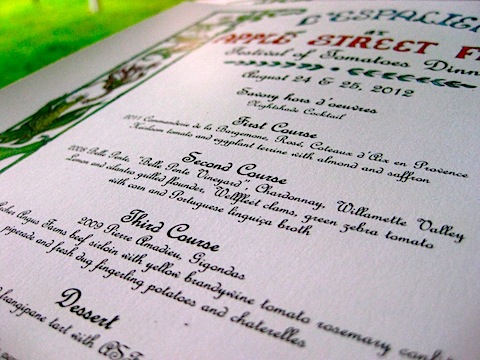 L'ESPALIER
AT
APPLE STREET F
Festival of Tomatoes Dinn
August 24 & 25, 2012
Savory hors d'oeuvres
Nightshade Cocktail
First Course
2011 Commanderie de la Bargemone, Rosé, Coteaux d'Aix en Provence
Heirloom tomato and eggplant terrine with almond and saffron
Second Course
2008 Belle Pente, "Belle Pente Vineyard", Chardonnay, Willamette Valley
Lemon and cilantro grilled flounder, Wellfleet clams, green zebra tomato
with corn and Portuguese linguiza broth
Third Course
2009 Pierre Amadieu, Gigondas
Angus Farms beef sirloin with yellow brandywine tomato rosemary
piperade and fresh dug fingerling potatoes and chaterelles
Dessert
frangipane tart with